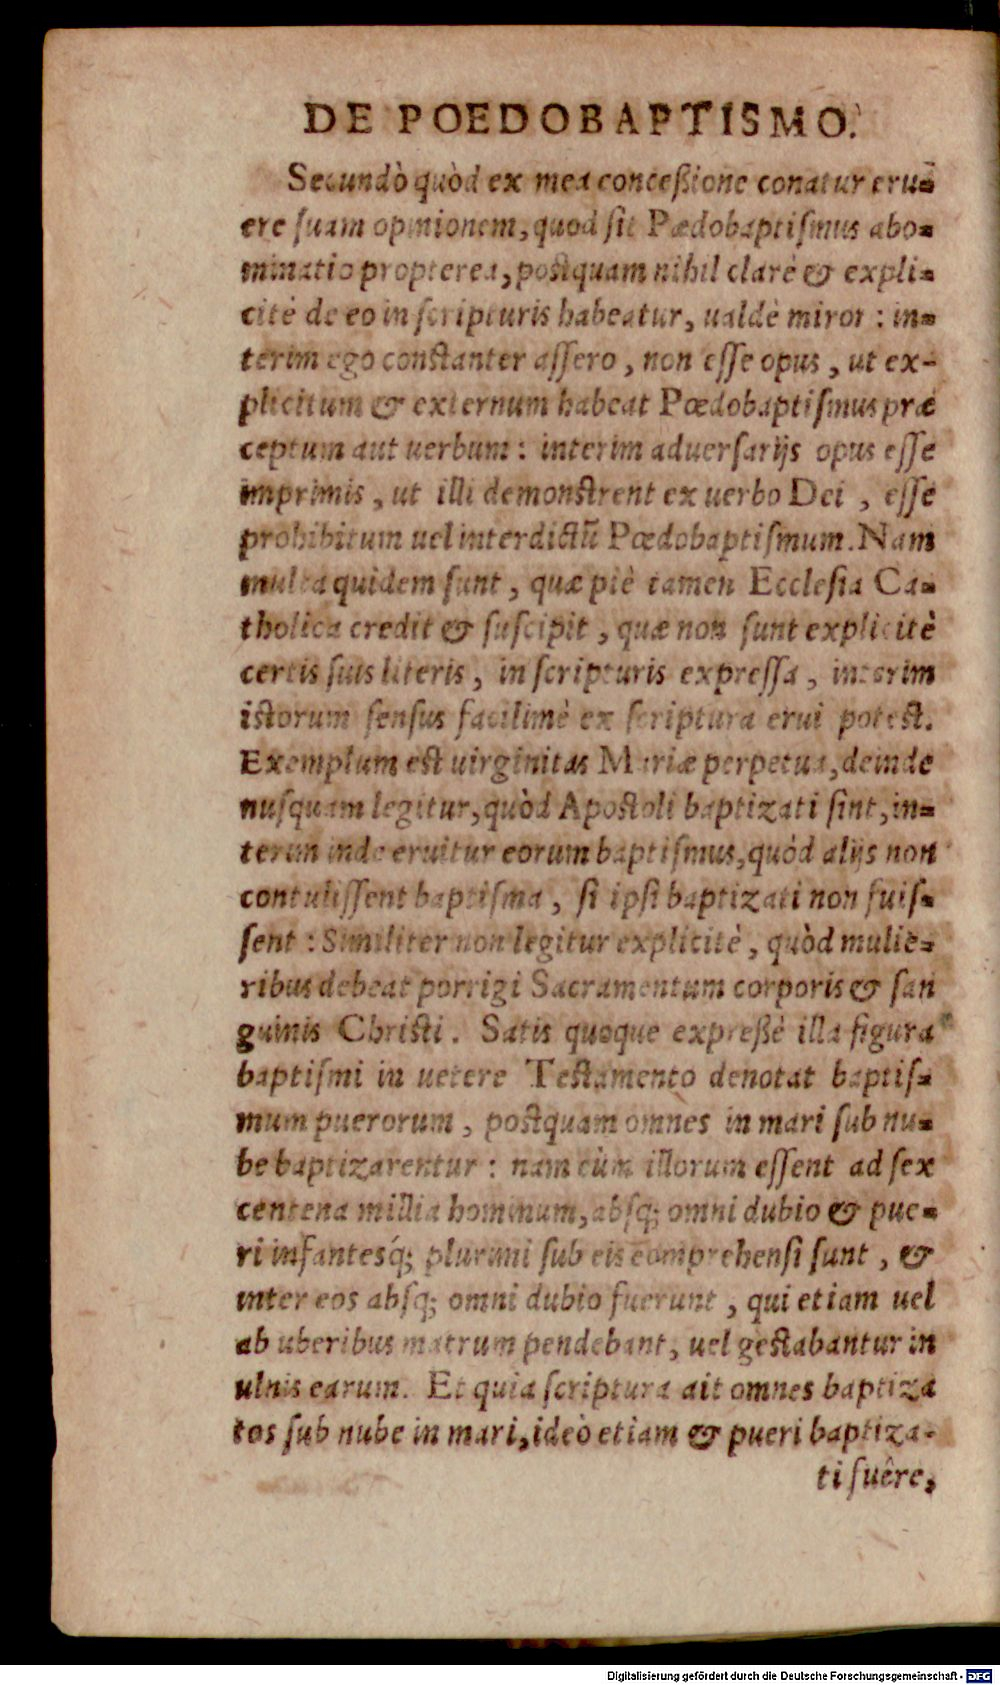 DE POEDOBAPTISMO.
Secundò quòd ex mea conceßione conatur eru=
ere ſuam opinionem, quod ſit Pædobaptiſmus abo=
minatio propterea, poſtquam nihil clarè & expli=
citè de eo in ſcripturis habeatur, ualdè miror : in=
terim ego conſtanter aſſero, non eſſe opus, ut ex-
plicitum & externum habeat Pœdobaptiſmus præ
ceptum aut uerbum : interim aduerſarijs opus eſſe
imprimis, ut illi demonſtrent ex uerbo Dei, eſſe
prohibitum uel interdictū Pœdobaptiſmum. Nam
multa quidem ſunt, quæ piè tamen Eccleſia Ca=
tholica credit & ſuſcipit, quæ non ſunt explicitè
certis ſuis literis, in ſcripturis expreſſa, interim
iſtorum ſenſus facilimè ex ſcriptura erui poteſt.
Exemplum eſt uirginitas Mariæ perpetua, deinde
nuſquam legitur, quòd Apoſtoli baptizati ſint, in=
terim inde eruitur eorum baptiſmus, quòd alijs non
contuliſſent baptiſma, ſi ipſi baptizati non fuiſ=
ſent : Similiter non legitur explicitè, quòd mulie=
ribus debeat porrigi Sacramentum corporis & ſan
guinis Chriſti. Satis quoque expreßè illa figura
baptiſmi in uetere Teſtamento denotat baptiſ=
mum puerorum, poſtquam omnes in mari ſub nu=
be baptizarentur : nam cùm illorum eſſent ad ſex
centena millia hominum, abſq; omni dubio & pue=
ri infantesq́; plurimi ſub eis comprehenſi ſunt, &
inter eos abſq; omni dubio fuerunt, qui etiam uel
ab uberibus matrum pendebant, uel geſtabantur in
ulnis earum. Et quia ſcriptura ait omnes baptiza
tos ſub nube in mari, ideò etiam & pueri baptiza-
ti fuêre,
Digitalisierung gefördert durch die Deutsche Forschungsgemeinschaft - DFG